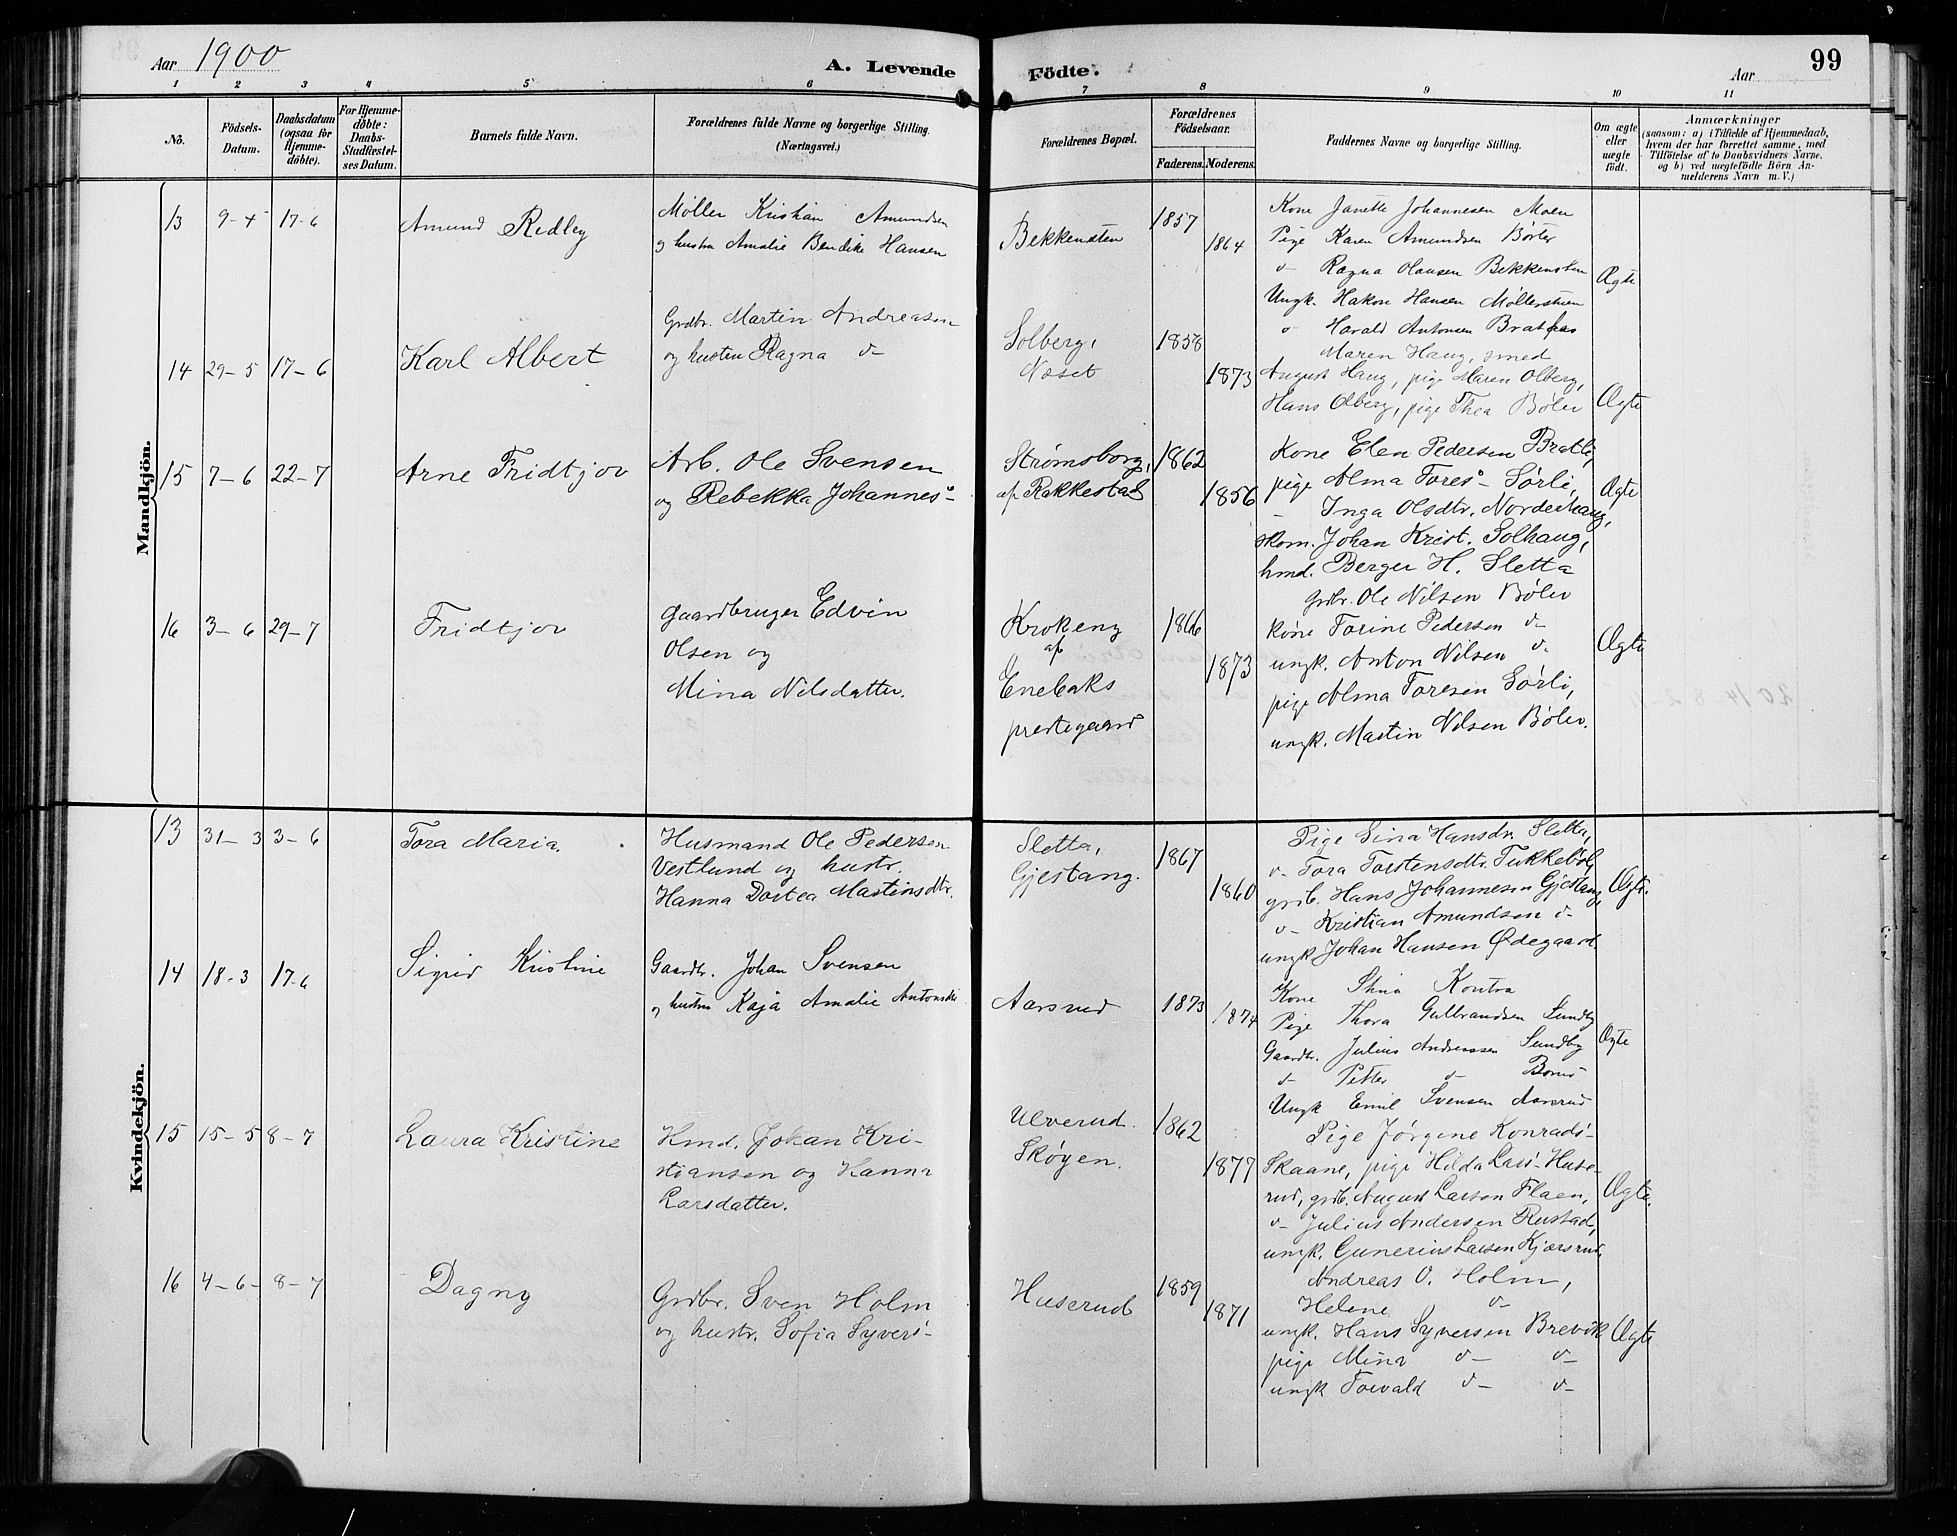 Aar 1900
A. Levende Födte.
Aar 99
1 2 3 4 5 6 7 8 9 10 11
No.
Födsels-Datum.
Daabsdatum (ogsaa for Hjemmedöbte).
For Hjemmedöbte: Daabs-Stadfæstelses Datum.
Barnets fulde Navn.
Forældrenes fulde Navne og borgerlige Stilling. (Næringsvei.)
Forældrenes Bopæl.
Forældrenes Födselsaar.
Faderens. Moderens.
Faddernes Navne og borgerlige Stilling.
Om ægte eller uægte födt.
Anmærkninger
(saasom: a) i Tilfælde af Hjemmedaab, hvem der har forrettet samme, med Tilföielse af to Daabsvidners Navne, og b) ved uægtefödte Börn Anmelderens Navn m. V.)
Mandkjön.
13 9-4 17-6 Amund Redley
Møller Kristian Amundsen
og hustru Amalie Bendike Hansen
Bekkensten 1857 1864
Kone Janette Johannesen Moen
Pige Karen Amundsen Börter
d- Ragna Olausen Bekkensten
Ungk. Hakon Hansen Möllerstuen
d- Harald Antonsen Bratfos
Ægte
14 29-5 17-6 Karl Albert
Grdbr. Martin Andreasen
og hustru Ragna d-
Solberg,
Næset
1858 1873
Maren Haug, smed
August Haug, pige Maren Olberg,
Hans Olberg, pige Thea Bøler
Ægte
15 7-6 22-7 Arne Fridtjov
Arb. Ole Svensen
og Rebekka Johannes-
Strømsborg,
af Rakkestad
1862 1856
Kone Elen Pedersen Bratli,
pige Alma Tores- Sørli,
- Inga Olsdtr. Norderhaug,
skom. Johan Krist. Solhaug,
hmd. Berger H. Sletta
Ægte
16 3-6 29-7 Fridtjov
gaardbruger Edvin
Olsen og
Mina Nilsdatter.
Krokeng
af
Enebaks
prestegaard
1866 1873
grdbr. Ole Nilsen Bøler
kone Torine Pedersen d-
ungk. Anton Nilsen d-
pige Alma Toresen Sørli,
ungk. Martin Nilsen Bøler.
Ægte
Kvindekjön.
13 31-3 3-6 Tora Maria.
Husmand Ole Pedersen
Vestlund og hustr.
Hanna Dortea Martinsdtr.
Sletta,
Gjestang.
1867 1860
Pige Lina Hansdr. Sletta,
d- Tora Torstensdtr. Tukkebøl,
grdb. Hans Johannesen Gjestang,
d- Kristian Amundsen d-
ungk Johan Hansen Ødegaard
Ægte.
14 18-3 17-6 Sigrid Kristine
Gaardbr. Johan Svensen
og hustru Kaja Amalie Antonsdtr
Aarsrud 1873 1874
Kone Stina Kontra
Pige Thora Gulbrandsen Sundby
Gaardbr. Julius Andreassen Sundby
d- Petter d- Borud
Ungk Emil Svensen Aarsrud
Ægte
15 15-5 8-7 Laura Kristine
Hmd. Johan Kri-
stiansen og Hanna
Larsdatter.
Ulverud.
Skøyen.
1862 1877
Pige Jørgine Konrads-
Skaane, pige Hilda Lars- Huse-
rud, grdb. August Larsen Flaen,
d- Julius Andersen Rustad,
ungk. Gunerius Larsen Kjærsrud.
Ægte.
16 4-6- 8-7 Dagny
Grdbr. Sven Holm
og hustr. Sofia Syvers-
Huserud 1859 1871
Andreas O. Holm,
Helene d-
ungk. Hans Syversen Brevik
pige Mina d- d-
ungk Torvald d- d-
Ægte